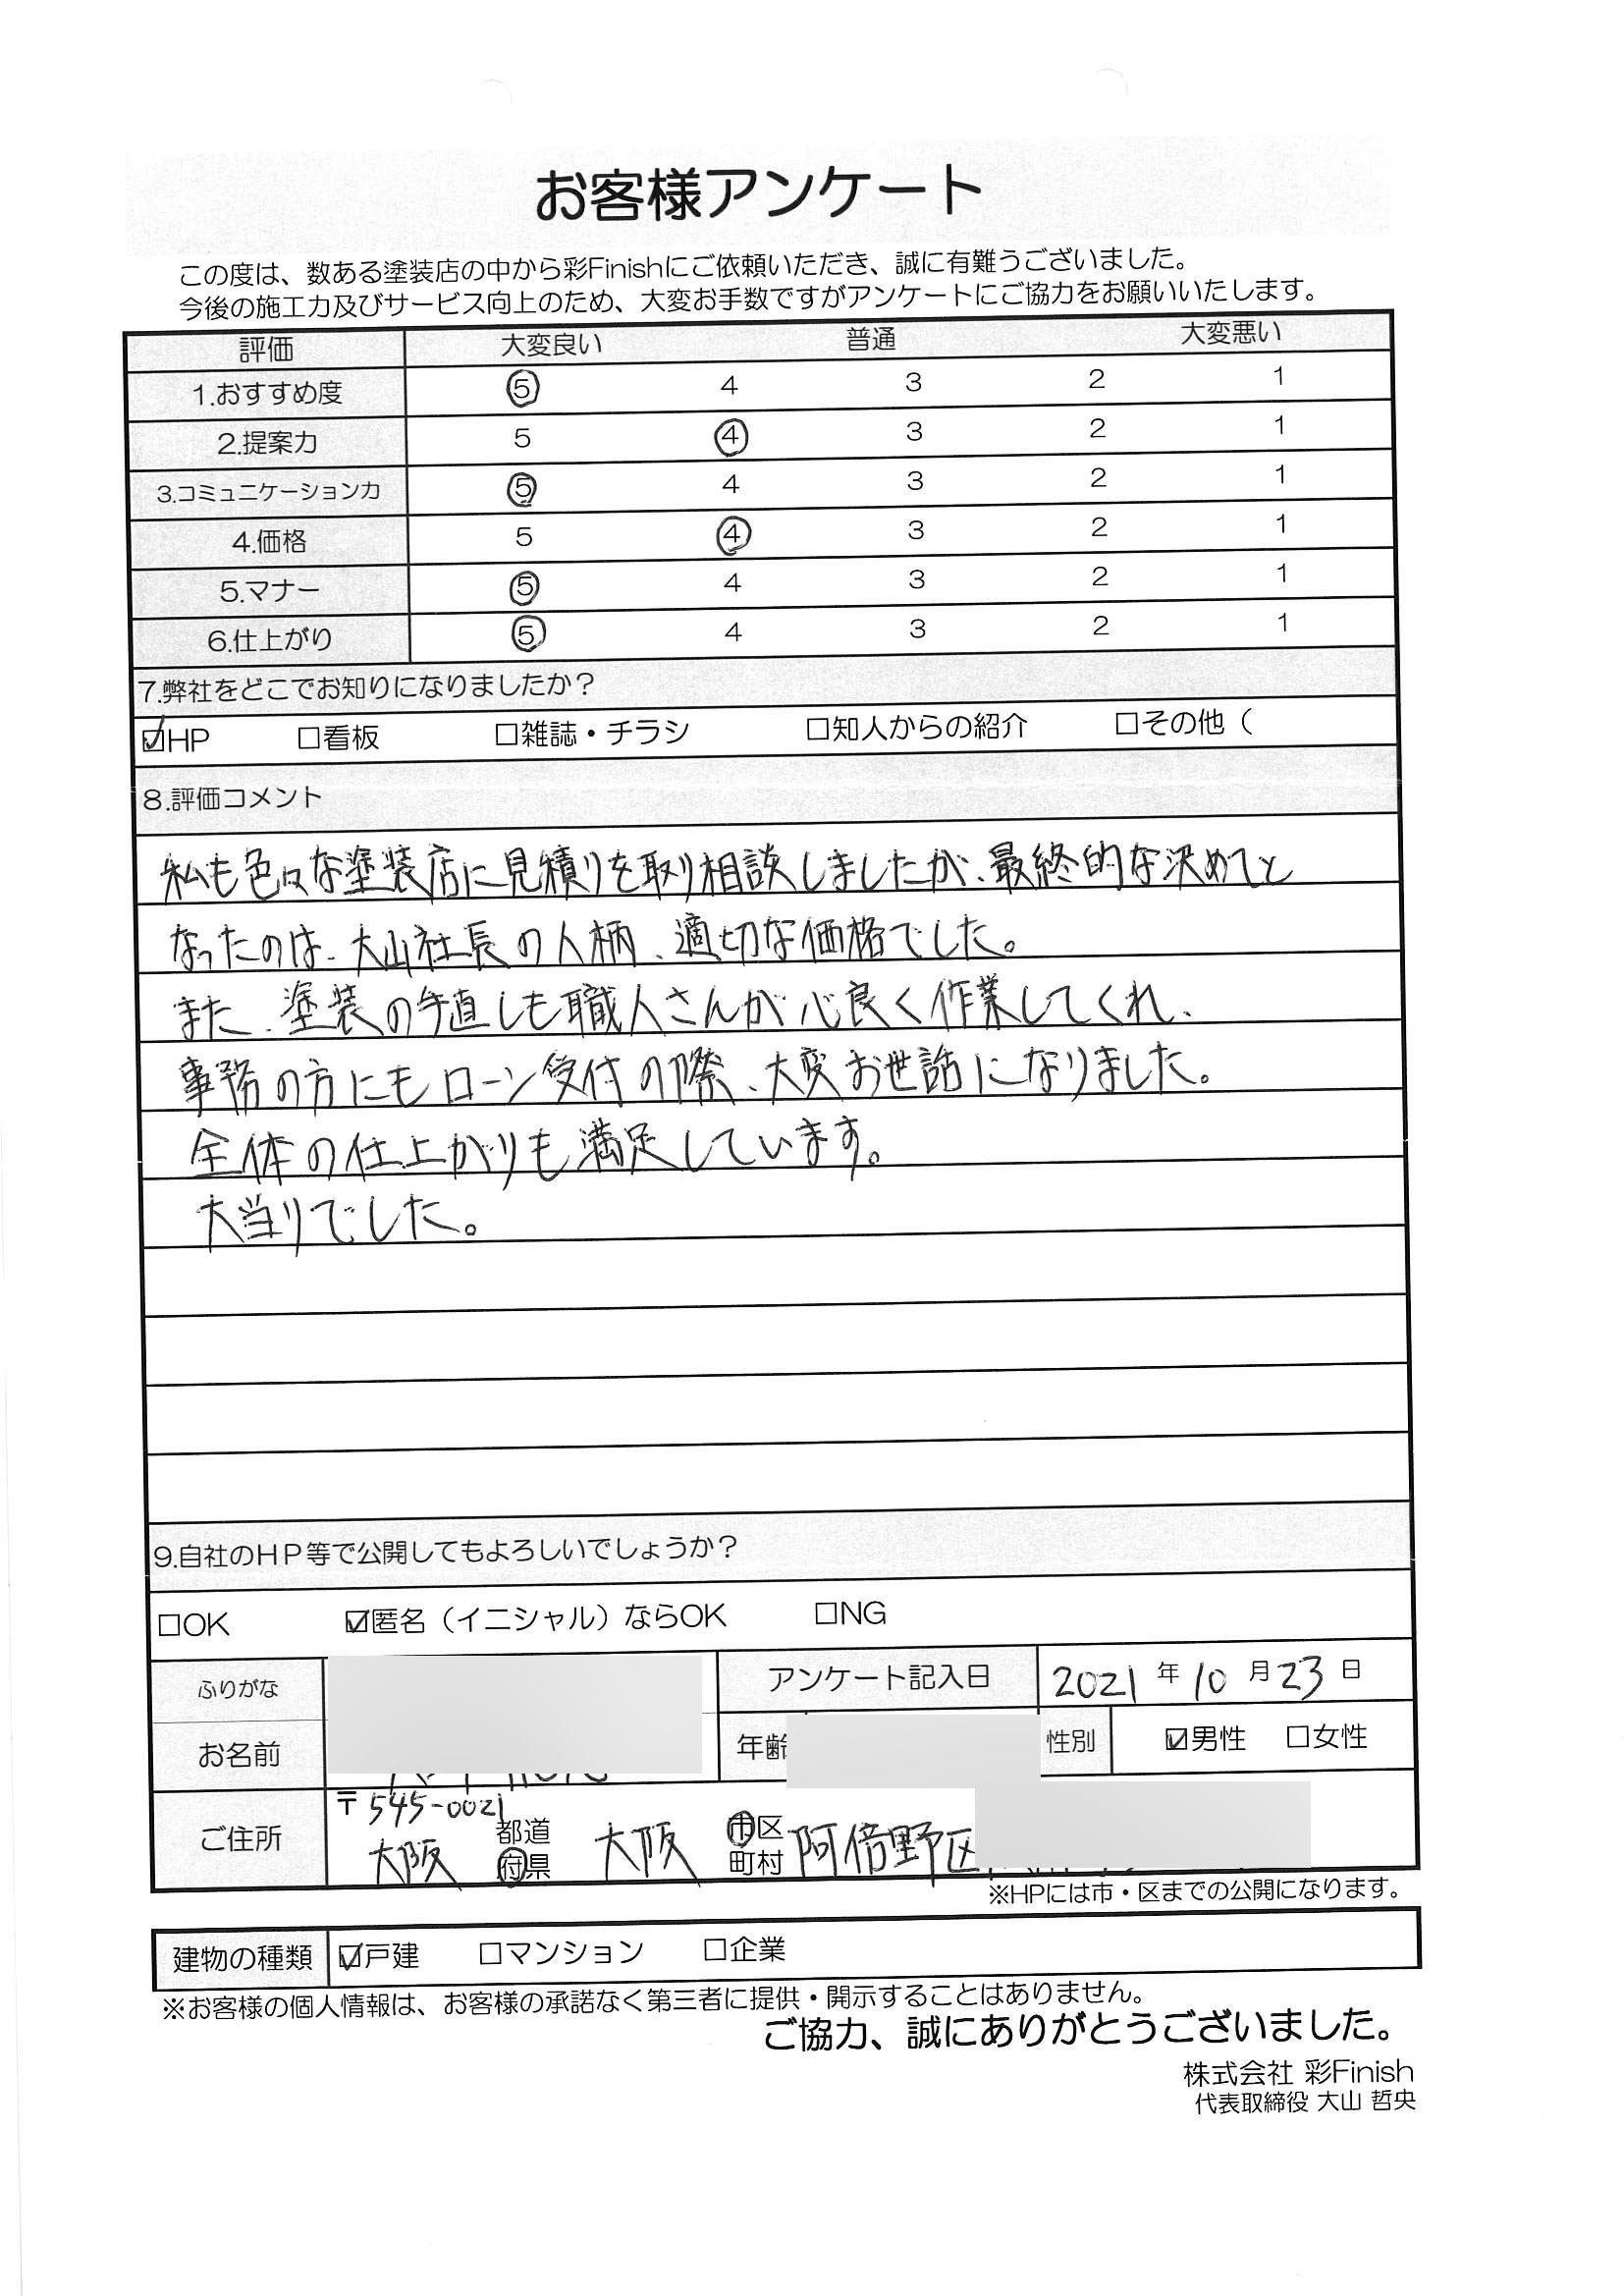 お客様アンケート
この度は、数ある塗装店の中から彩Finishにご依頼いただき、誠に有難うございました。
今後の施工力及びサービス向上のため、大変お手数ですがアンケートにご協力をお願いいたします。
評価 大変良い 普通 大変悪い
1.おすすめ度 5 4 3 2 1
2.提案力 5 4 3 2 1
3.コミュニケーション力 5 4 3 2 1
4.価格 5 4 3 2 1
5.マナー 5 4 3 2 1
6.仕上がり 5 4 3 2 1
7.弊社をどこでお知りになりましたか？
☑HP □看板 □雑誌・チラシ □知人からの紹介 □その他（
8.評価コメント
私も色々な塗装店に見積りを取り相談しましたが、最終的な決めてと
なったのは、大山社長の人柄、適切な価格でした。
また、塗装の手直しも職人さんが心良く作業してくれ、
事務の方にもローン受付の際、大変お世話になりました。
全体の仕上がりも満足しています。
大当りでした。
9.自社のＨＰ等で公開してもよろしいでしょうか？
□OK ☑匿名（イニシャル）ならOK □NG
ふりがな アンケート記入日 2021年10月23日
お名前 年齢 性別 ☑男性 □女性
ご住所 〒545-0021
大阪 都道府県 大阪 市区町村 阿倍野区
※HPには市・区までの公開になります。
建物の種類 ☑戸建 □マンション □企業
※お客様の個人情報は、お客様の承諾なく第三者に提供・開示することはありません。
ご協力、誠にありがとうございました。
株式会社 彩Finish
代表取締役 大山 哲央